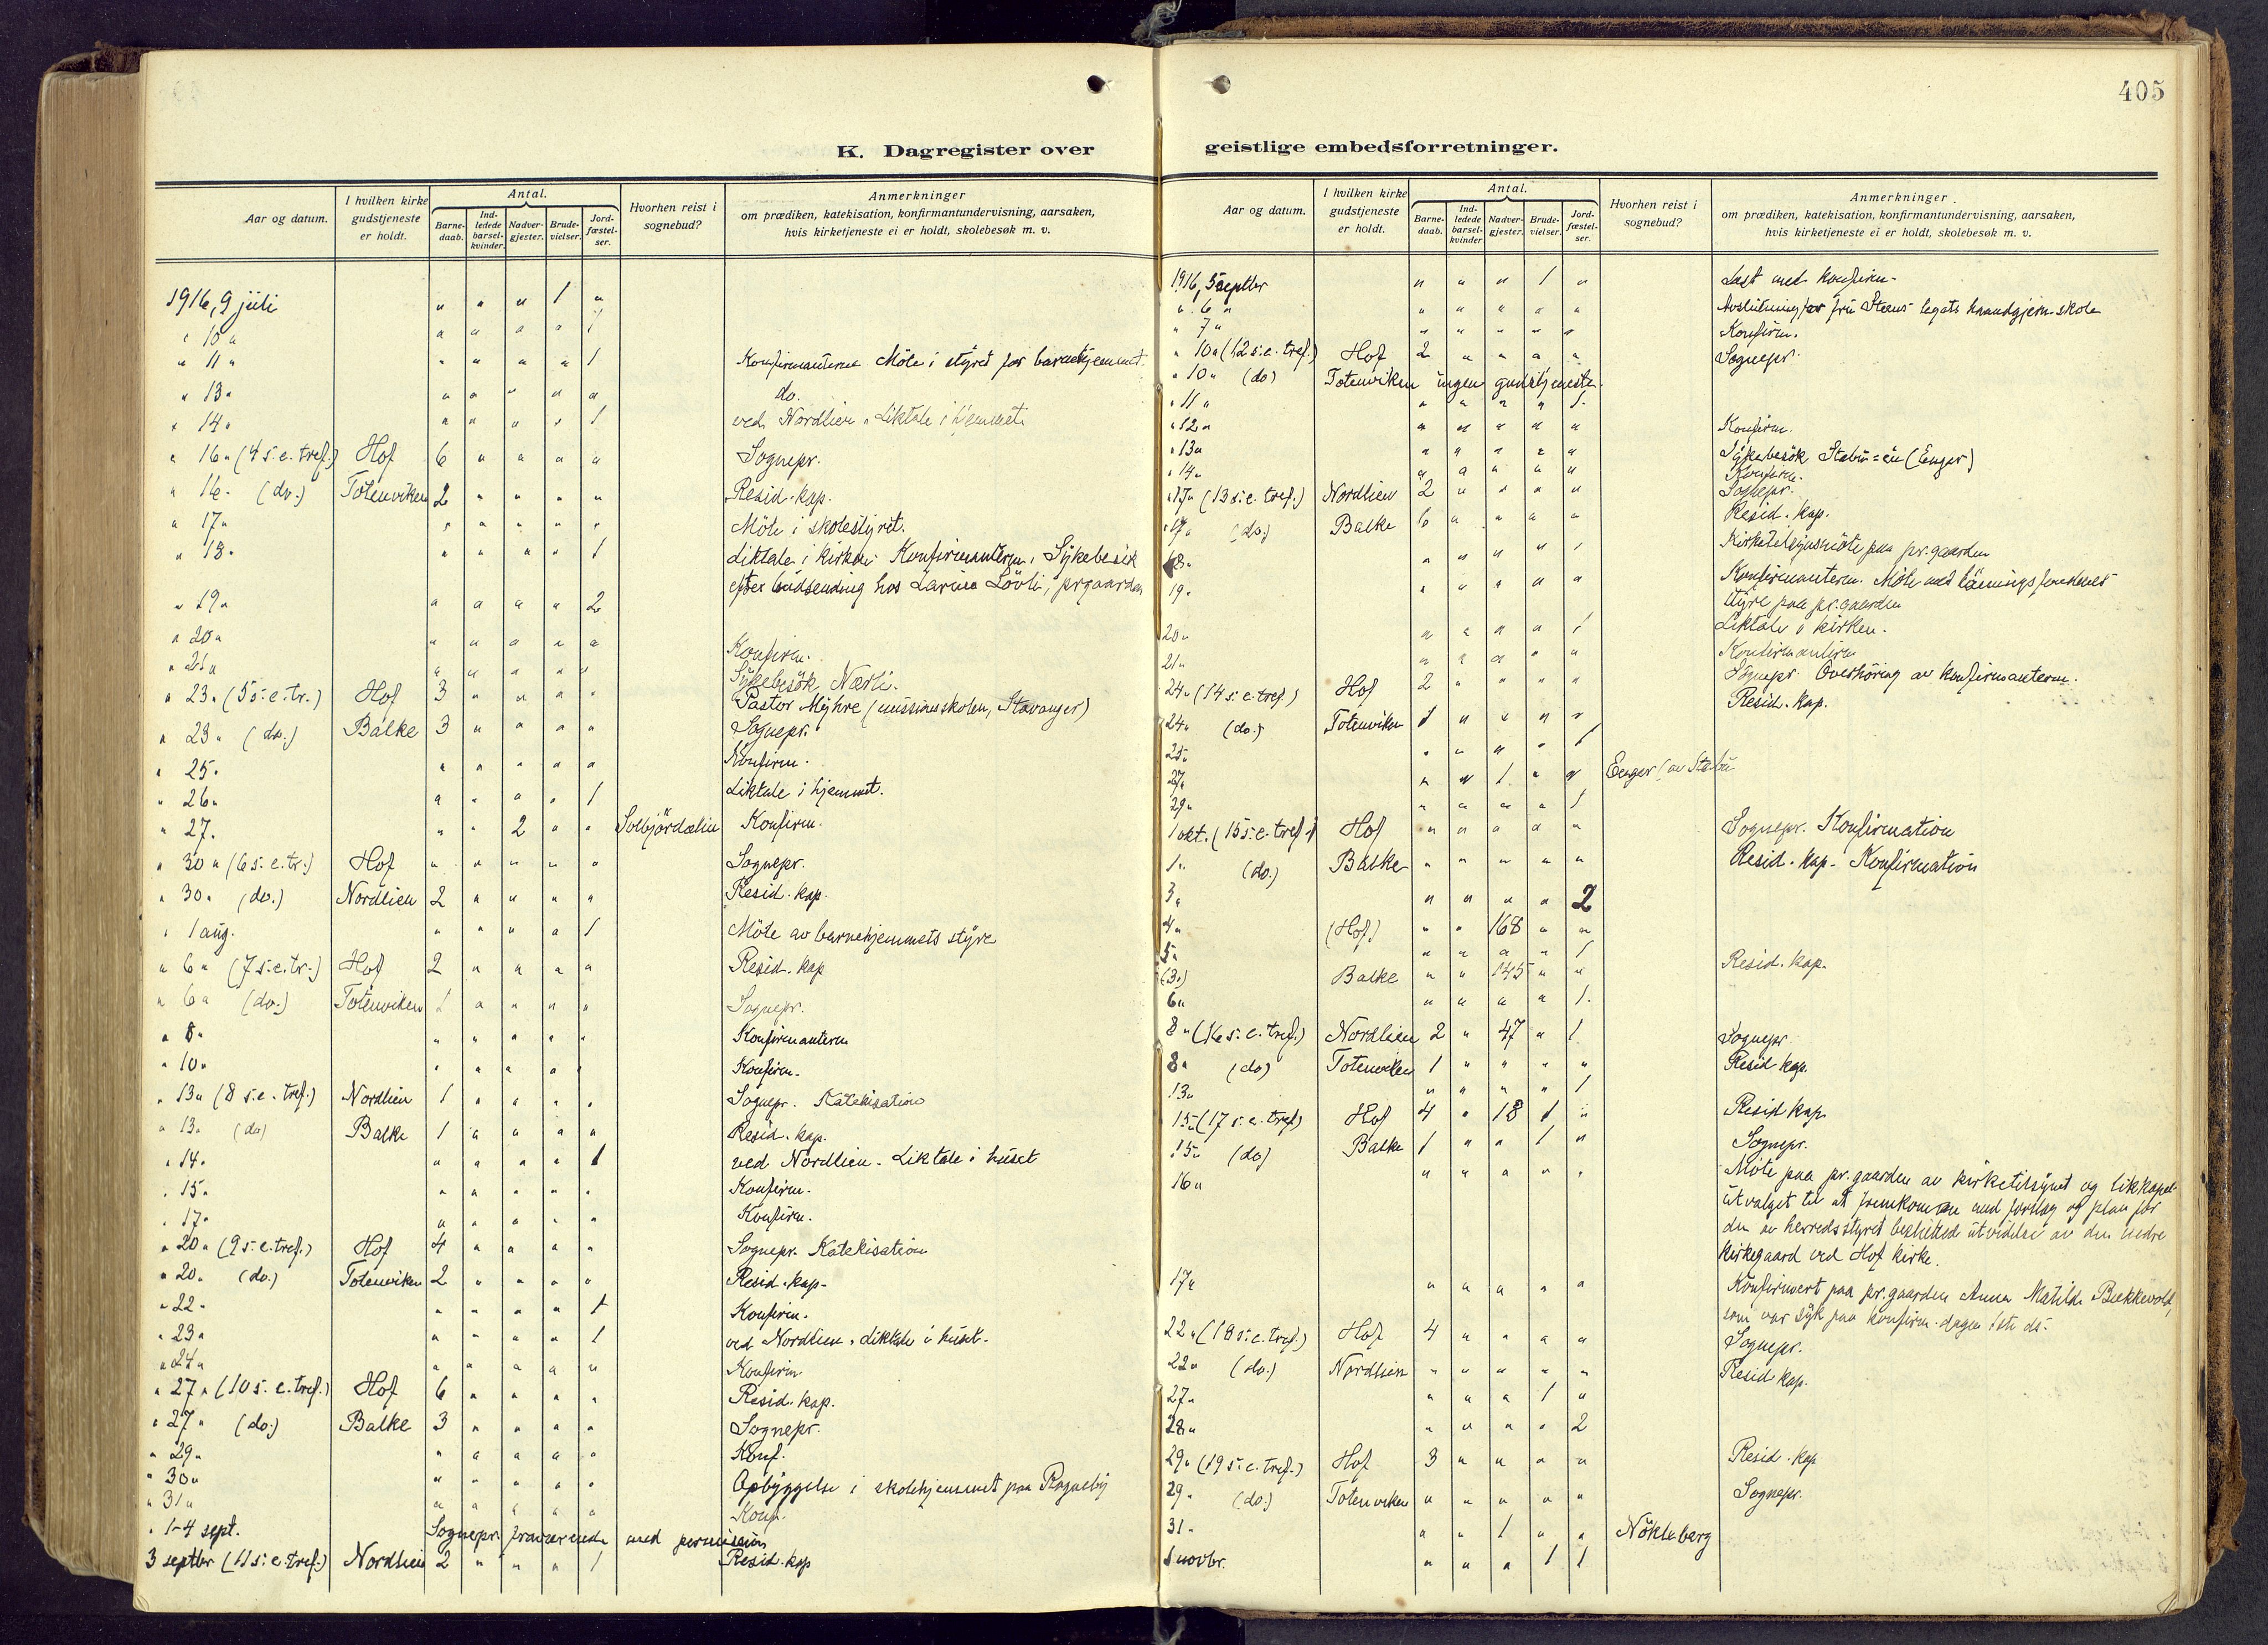 405
K. Dagregister over geistlige embedsforretninger.
Aar og datum. I hvilken kirke gudstjeneste er holdt. Antal. Barne-daab. Ind-ledede barsel-kvinder. Nadver-gjester. Brude-vielser. Jord-fæstel-ser. Hvorhen reist i sognebud? Anmerkninger om prædiken, katekisation, konfirmantundervisning, aarsaken, hvis kirketjeneste ei er holdt, skolebesøk m. v.
1916, 9 juli " " " 1 "
" 10 " " " " " 1
" 11 " " " " " 1 Konfirmanterne Möte i styret for barnehjemmet.
" 13 " " " " " " do.
" 14 " " " " " 1 ved Nordlien " Liktale i hjemmet
" 16 " (4 s. e. tref.) Hof 6 " " " " Sognepr.
" 16 " (do.) Totenviken 2 " " " " Resid. kap.
" 17 " " " " " " Möte i skolestyret.
" 18 " " " " " 1 Liktale i kirken. Konfirmanterne, Sykebesök
efter budsending hos Larine Lövli, prgaarden
" 19 " " " " " 2
" 20 " " " " " " Konfirm.
" 21 " " " " " " Sykebesök Nærli.
" 23 " (5 s. e. tr.) Hof 3 " " " " Pastor Myhre (missionsskolen, Stavanger)
" 23 " (do.) Balke 3 " " " " Sognepr.
" 25 " " " " " " Konfirm.
" 26 " " " " " 1 Liktale i hjemmet.
" 27. " " 2 " " Solbjördælien Konfirm.
" 30 " (6 s. e. tr.) Hof " " " " " Sognepr.
" 30 " (do.) Nordlien 2 " " " " Resid. kap.
" 1 aug. " " " " 1 Möte av barnehjemmets styre
" 6 " (7 s. e. tr.) Hof 2 " " " " Resid. kap
" 6 " (do.) Totenviken 1 " " " " Sognepr.
" 8 " " " " " " Konfirmanterne
" 10 " " " " " " Konfirm.
" 13 " (8 s. e. tref.) Nordlien 1 " " " " Sognepr. Katekisation
" 13 " (do) Balke 1 " " " " Resid. kap.
" 14 " " " " " 1 ved Nordlien. Liktale i huset
" 15 " " " " " " Konfirm.
" 17 " " " " " " Konfirm.
" 20 " (9 s. e. tref.) Hof 4 " " " " Sognepr. Katekisation
" 20 " (do.) Totenviken 2 " " " " Resid. kap.
" 22 " " " " " 1 Konfirm.
" 23 " " " " " 1 ved Nordlien, liktale i huset.
" 24 " " " " " " Konfirm
" 27 " (10 s. e. tref.) Hof 6 " " " " Resid. kap.
" 27 " (do.) Balke 3 " " " " Sognepr.
" 29 " " " " " " Konf.
" 30 " " " " " " Opbyggelse i skolehjemmet paa Rogneby
" 31 " " " " " " Konf.
" 1-4 sept. Sognepr. fraværende med permission
3 septbr (11 s. e. tref.) Nordlien 2 " " " 1 Resid. kap
Aar og datum. I hvilken kirke gudstjeneste er holdt. Antal. Barne-daab. Ind-ledede barsel-kvinder Nadver-gjester. Brude-vielser. Jord-fæstel-ser. Hvorhen reist i sognebud? Anmerkninger. om prædiken, katekisation, konfirmantundervisning, aarsaken, hvis kirketjeneste ei er holdt, skolebesøk m. v.
1916, 5 septbr " " " 1 " Læst med konfirm.
" 6 " " " " " " Avslutning for fru Steens legats haandgjern.skole
" 7 " " " " " " Konfirm.
" 10 " (12 s. e. tref.) Hof 2 " " " " Sognepr.
" 10 " (do) Totenviken ingen gudstjeneste.
" 11 " " " " " 1.
" 12 " " " " " " Konfirm.
" 13 " " " " " " Sykebesök Stabu-ei (Enger)
" 14 " " " " " " Konfirm.
" 17 " (13 s. e. tref.) Nordlien 2 " " " " Sognepr.
" 17 " (do.) Balke 6 " " " " Resid. kap.
18 " " " " " 1 Kirketilsynsmöte paa pr.gaarden
19 " " " " " " Konfirmanterne. Möte med lønningsfondenes
styre paa pr.gaarden
20 " " " " " 1 Liktale i kirken.
21 " " " " " " Konfirmanterne
24 " (14 s. e. tref.) Hof 2 " " " " Sognepr Overhöring av konfirmanterne.
24 " (do.) Totenviken 1 " " " " Resid. kap.
25 " " " " " 1
27 " " " 1 " " Enger (av Stabu
29 " " " " " 1
1 okt. (15 s. e. tref.) Hof " " " " " Sognepr. Konfirmation
1 " (do.) Balke " " " " " Resid. kap. Konfirmation
3 " " " " " 2
4 " (Hof) " " 168 " "
5 " " " " " 1
(3.) Balke " " 145 " " Resid. kap.
6 " " " " " 1.
8 " (16 s. e. tref.) Nordlien 2 " 47 " 1 Sognepr
8 " (do) Totenviken 1 " " " " Resid kap.
13 " " " " " 1
15 (17 s. e. tref) Hof 4 " 18 1 " Resid kap.
15 " (do) Balke 1 " " 1 " Sognepr.
16 " " " " " " Möte paa pr.gaarden av kirketilsynet og likkapel-
utvalget til at fremkomme med forslag og plan for
den av herredsstyret besluttede utvidelse av den nedre
kirkegaard ved Hof kirke.
17 " " " " " " Konfirmert paa pr.gaarden Anna Matilde Bækkevold,
som var syk paa konfirm.dagen 1ste ds.
22 " (18 s. e. tref.) Hof 4 " " " " Sognepr.
22 " (do.) Nordlien " " " " " Resid kap.
27 " " " " 1 "
28 " " " " " 2
29 " (19 s. e. tref.) Hof 3 " " " " Resid. kap
29 " (do.) Totenviken " " " " " Sognepr.
31 " " " 1 " " Nökleberg
1 novbr. " " " 1 1